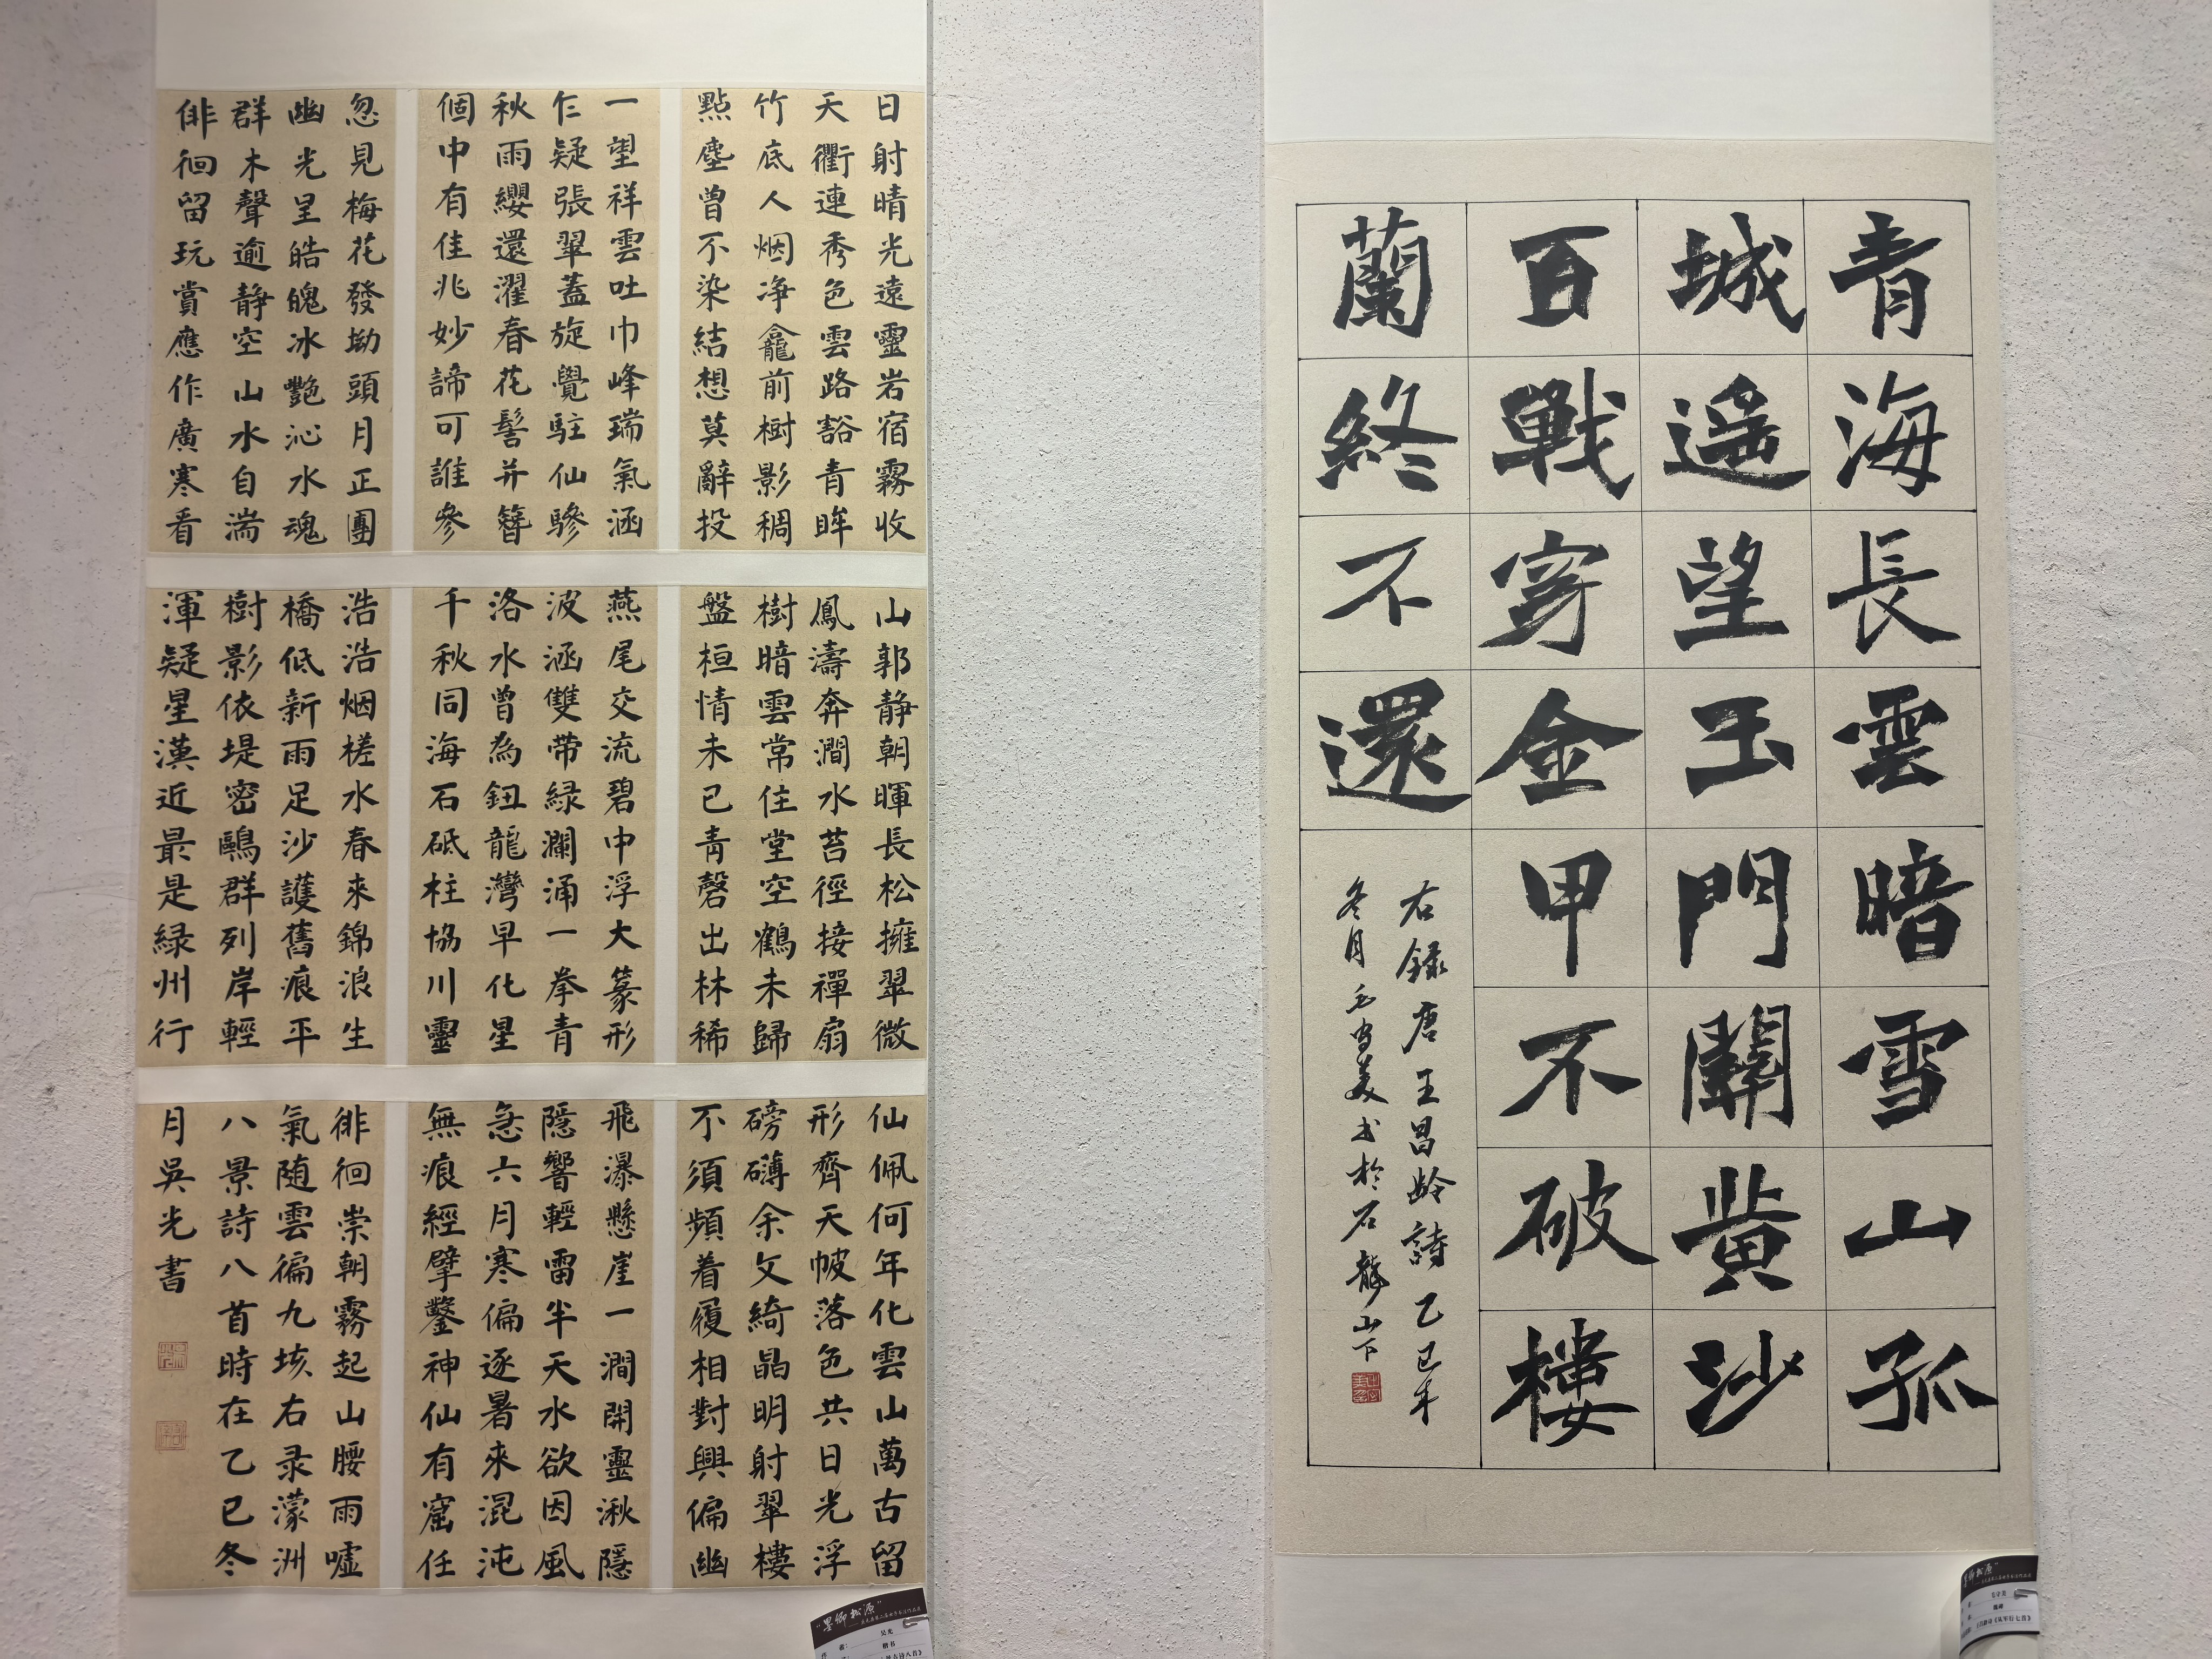 青海長雲暗雪山孤
城遥望玉門關黄沙
百戰穿金甲不破樓
蘭終不還
右録唐王昌龄詩乙巳年
冬月毛守美书於石龍山下
日射晴光遠靈岩宿霧收
天衢連秀色雲路豁青眸
竹底人烟净龕前樹影稠
點塵曾不染結想莫辭投
一望祥雲吐巾峰瑞氣涵
乍疑張翠蓋旋覺駐仙驂
秋雨纓還濯春花髻并簪
個中有佳兆妙諦可誰參
忽見梅花發坳頭月正團
幽光呈皓魄冰艷沁水魂
群木聲逾静空山水自湍
徘徊留玩賞應作廣寒看
山郭静朝暉長松擁翠微
鳳濤奔澗水苔徑接禪扇
樹暗雲常住堂空鶴未歸
盤桓情未已青磬出林稀
燕尾交流碧中浮大篆形
波涵雙带緑瀾涌一拳青
洛水曾為鈕龍灣早化星
千秋同海石砥柱協川靈
浩浩烟槎水春來錦浪生
橋低新雨足沙護舊痕平
樹影依堤密鷗群列岸輕
渾疑星漢近最是緑州行
仙佩何年化雲山萬古留
形齊天帔落色共日光浮
磅礴余文綺晶明射翠樓
不須頻着履相對興偏幽
飛瀑懸崖一澗開靈湫隱
隱響輕雷半天水欲因風
急六月寒偏逐暑來混沌
無痕經擘鑿神仙有窟任
徘徊崇朝霧起山腰雨噓
氣随雲徧九垓右录濛洲
八景詩八首時在乙巳冬
月吳光書
“墨鄉松源”
吴光
楷书
“墨鄉松源”
魏碑